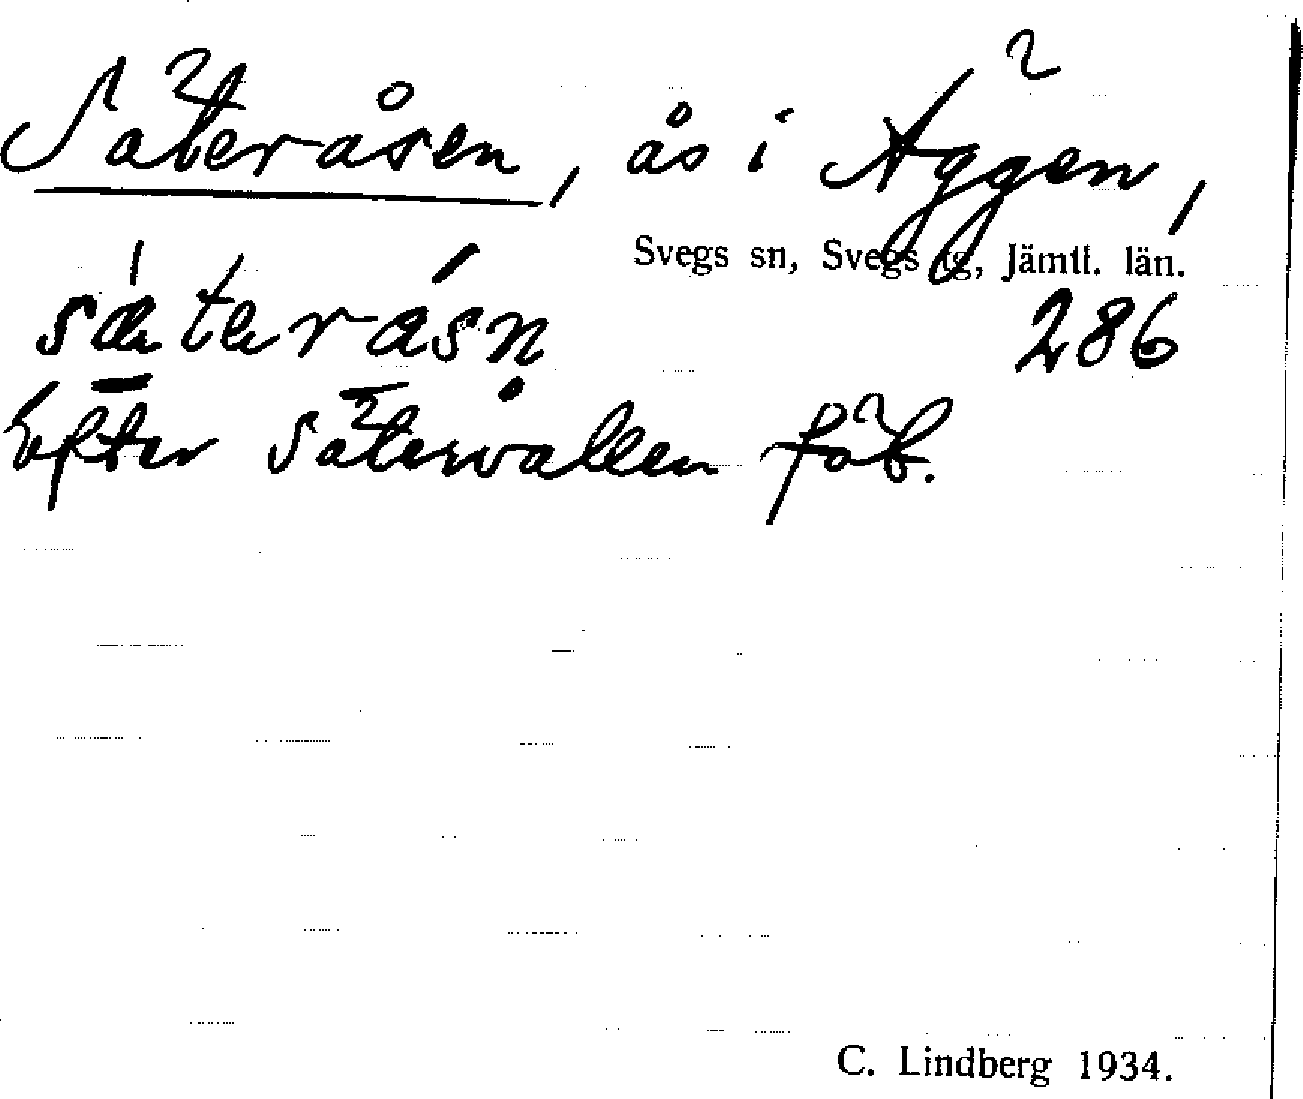 Säteråsen, ås i Äggen,
Svegs sn, Svegs tg, Jämtl. län.
sæteråsn 286
Efter Sätervallen fäb.
C. Lindberg 1934.